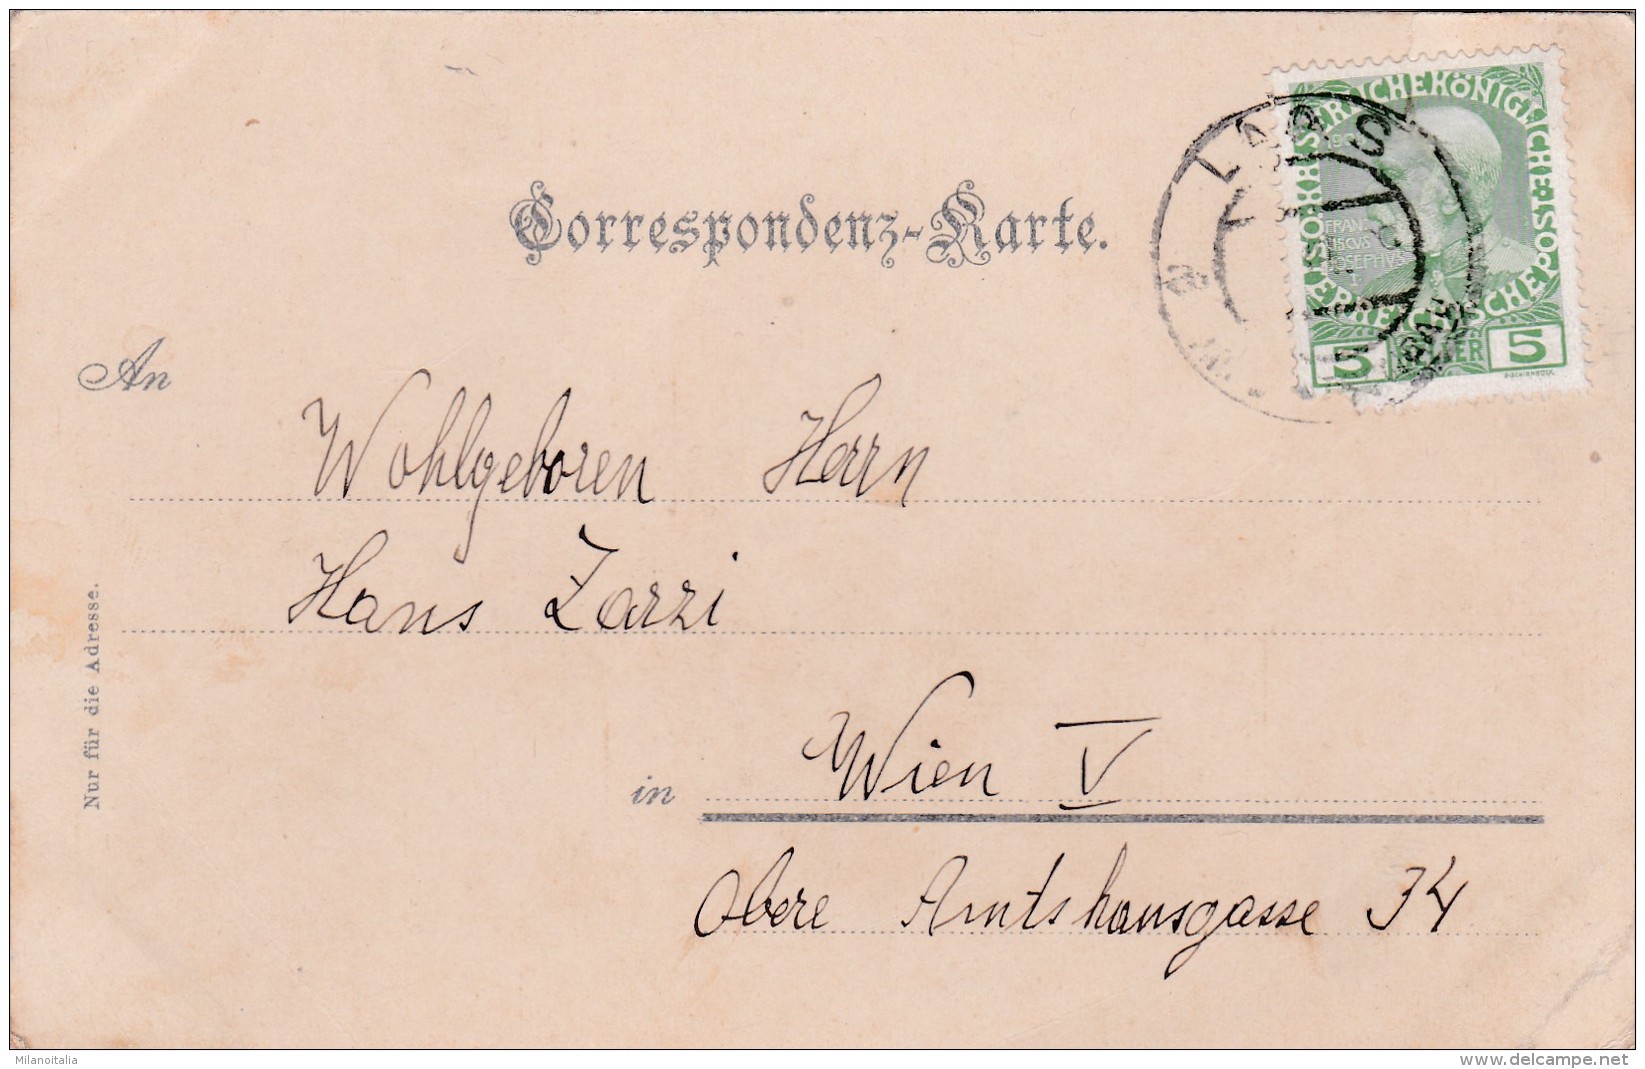 Correspondenz-Karte.
KAISERLICHE KÖNIGLICHE ÖSTERREICHISCHE POST
FRAN
CISCVS
JOSEPHVS
5 HELLER 5
An
Wohlgeboren Herrn
Hans Zarzi
in Wien V
Obere Amtshausgasse 34
Nur für die Adresse.
Milanoitalia
www.delcampe.net